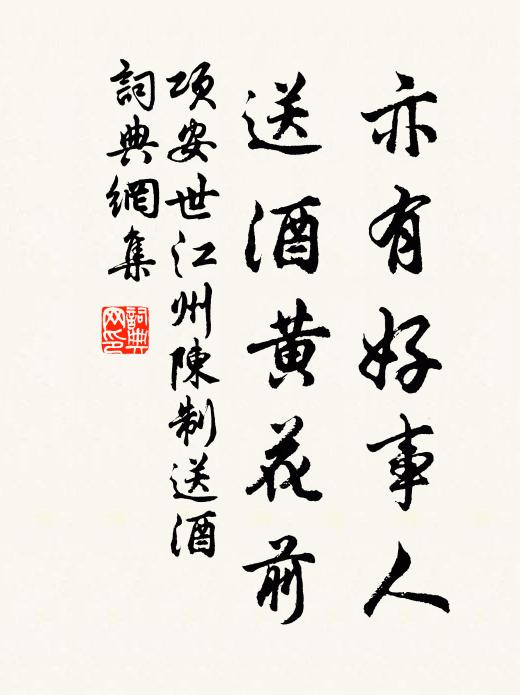 亦有好事人
送酒黄花前
项安世江州陳制送酒
詞典網集
詞典网印